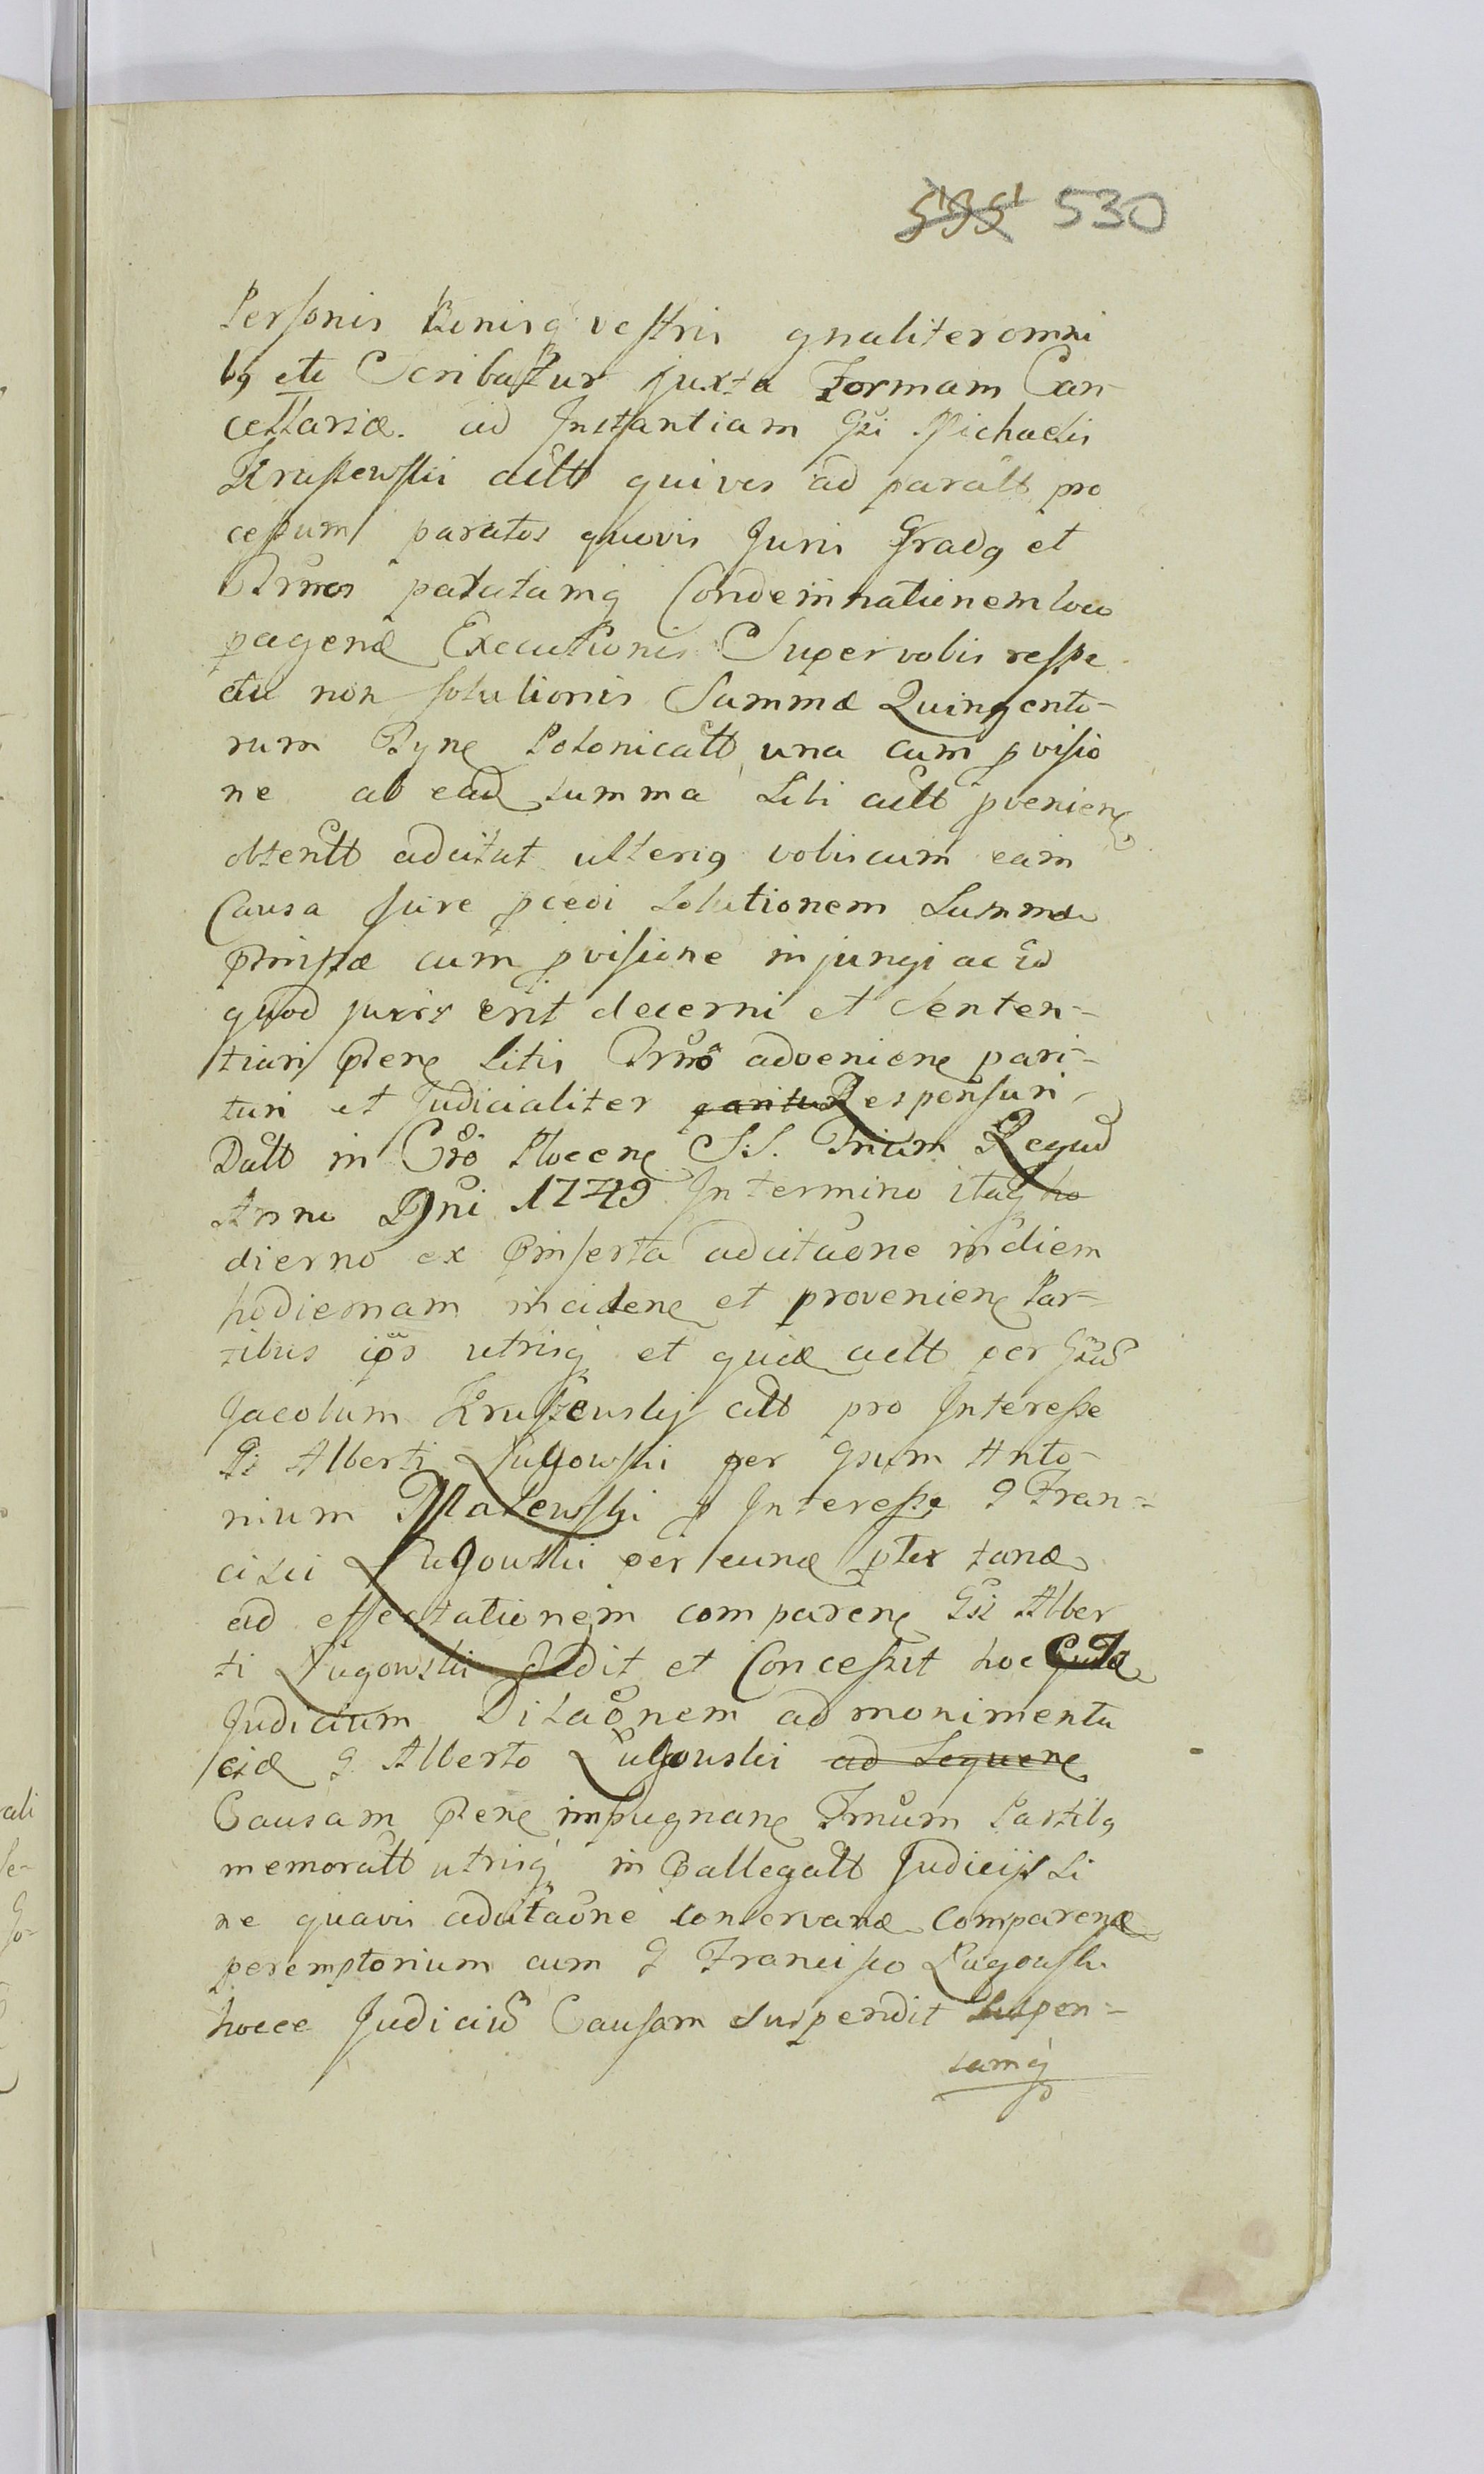 535 530
Personis Bonisq vestris gnaliter omni
bq etc Scribatur juxta Formam Can-
cellariæ. ad Instantiam Gsi Michaelis
Kruszewski actt quivis ad paratt pro
cessum paratos quovis Juris Gradq et
Trmos paratamq Condemnationem loco
pagenæ Executionis Super vobis respe
ctu non solutionis Summæ Quingento-
rum Flyne Polonicatt una cum pvisio
ne ab ead summa Sibi actt pvenien
obtentt adcitat ulteriq vobiscum eam
Causa jure pcedi Solutionem Summæ
Pmissæ cum pvisione injungi ac id
quod juris erit decerni et Senten-
tiari Pene litis Trmo advenien pari-
turi et Judicialiter paritu Responsuri
Datt in Cro Plocene S.S. Trium Regud
Anno Dni 1749 In termino itaq ho
dierno ex Pinserta adcitaone in diem
hodiernam inciden et provenien Par-
tibus ips utrisq et quid actt per Gsud
Jacobum Kruszewskij actt pro Interesse
Gi Alberti Lugowski per Gsum Anto-
nium Makewski p Interesse G Fran-
cisci Lugowski per eund pter tand
ad affectationem comparen Gsi Alber
ti Lugowski dedit et Concessit hoc
Judicium Dilaonem ad monimenta
eid G Alberto Lugowski ad Sequen
Causam Pene impugnan Trnum Partibq
memoratt utrisq in Pallegatt Judicijs Si
ne quavis adcitaone conservand Comparend
peremptorium cum G Francisco Lugowski
hocce Judiciud Causam suspendit Suspen-
samq
ali
se-